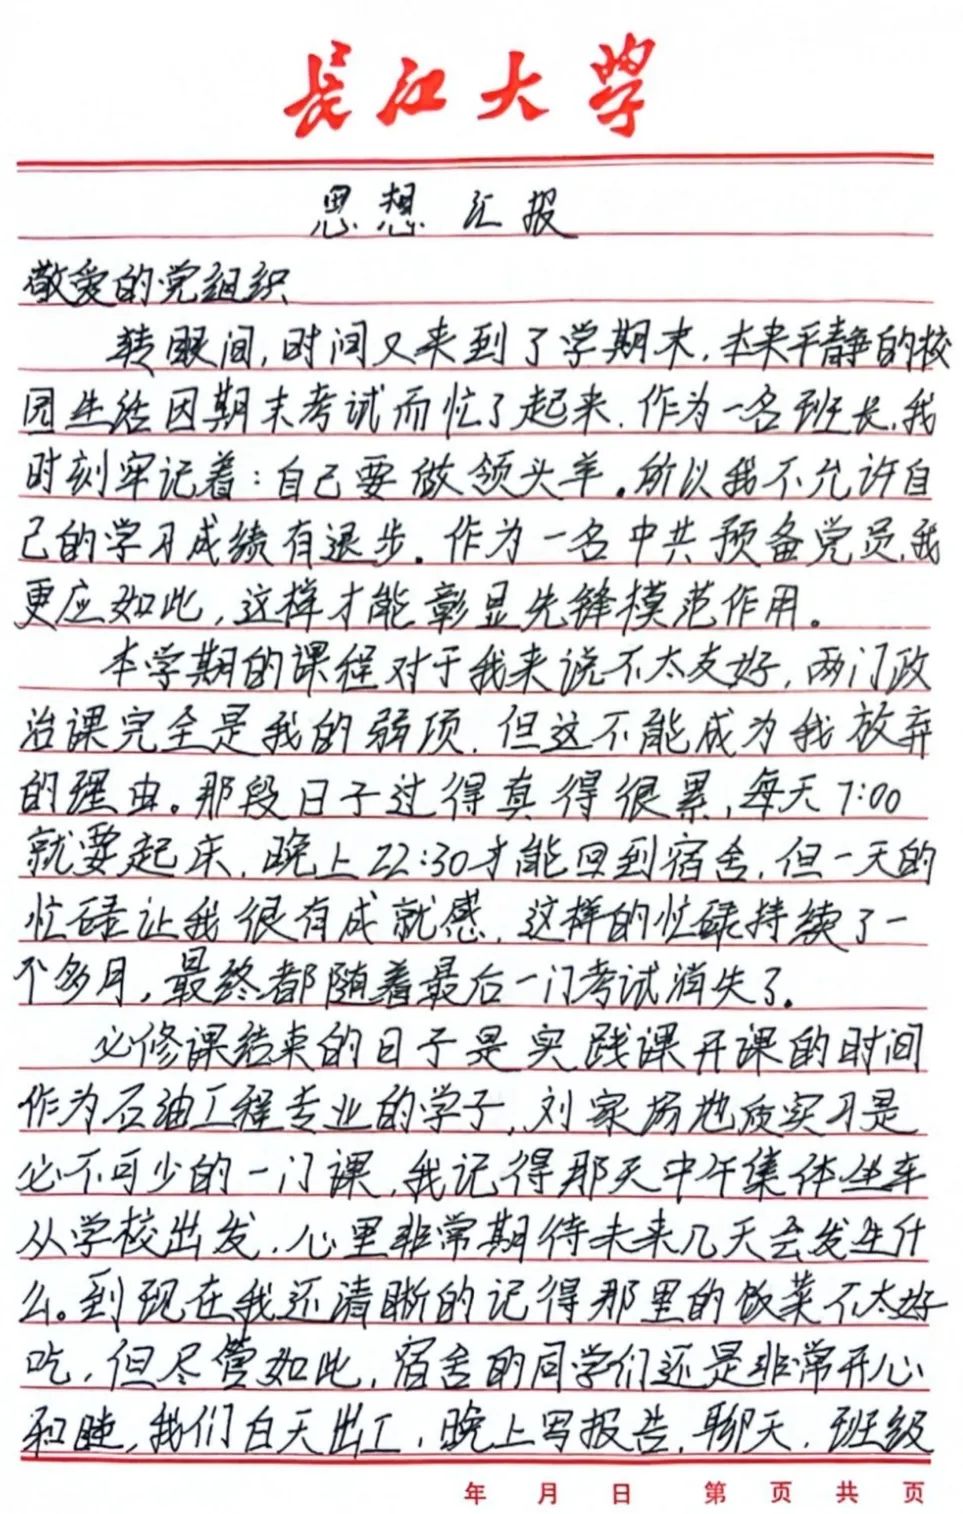 长江大学
思想汇报
敬爱的党组织
转眼间,时间又来到了学期末,本来平静的校
园生活因期末考试而忙了起来.作为一名班长,我
时刻牢记着:自己要做领头羊。所以我不允许自
己的学习成绩有退步.作为一名中共预备党员,我
更应如此,这样才能彰显先锋模范作用。
本学期的课程对于我来说不太友好,两门政
治课完全是我的弱项.但这不能成为我放弃
的理由。那段日子过得真得很累,每天7:00
就要起床,晚上22:30才能回到宿舍,但一天的
忙碌让我很有成就感,这样的忙碌持续了一
个多月,最终都随着最后一门考试消失了.
必修课结束的日子是实践课开课的时间
作为石油工程专业的学子,刘家场地质实习是
必不可少的一门课,我记得那天中午集体坐车
从学校出发,心里非常期待未来几天会发生什
么。到现在我还清晰的记得那里的饭菜不太好
吃,但尽管如此,宿舍的同学们还是非常开心
和睦,我们白天出工,晚上写报告,聊天,班级
年 月 日 第 页 共 页